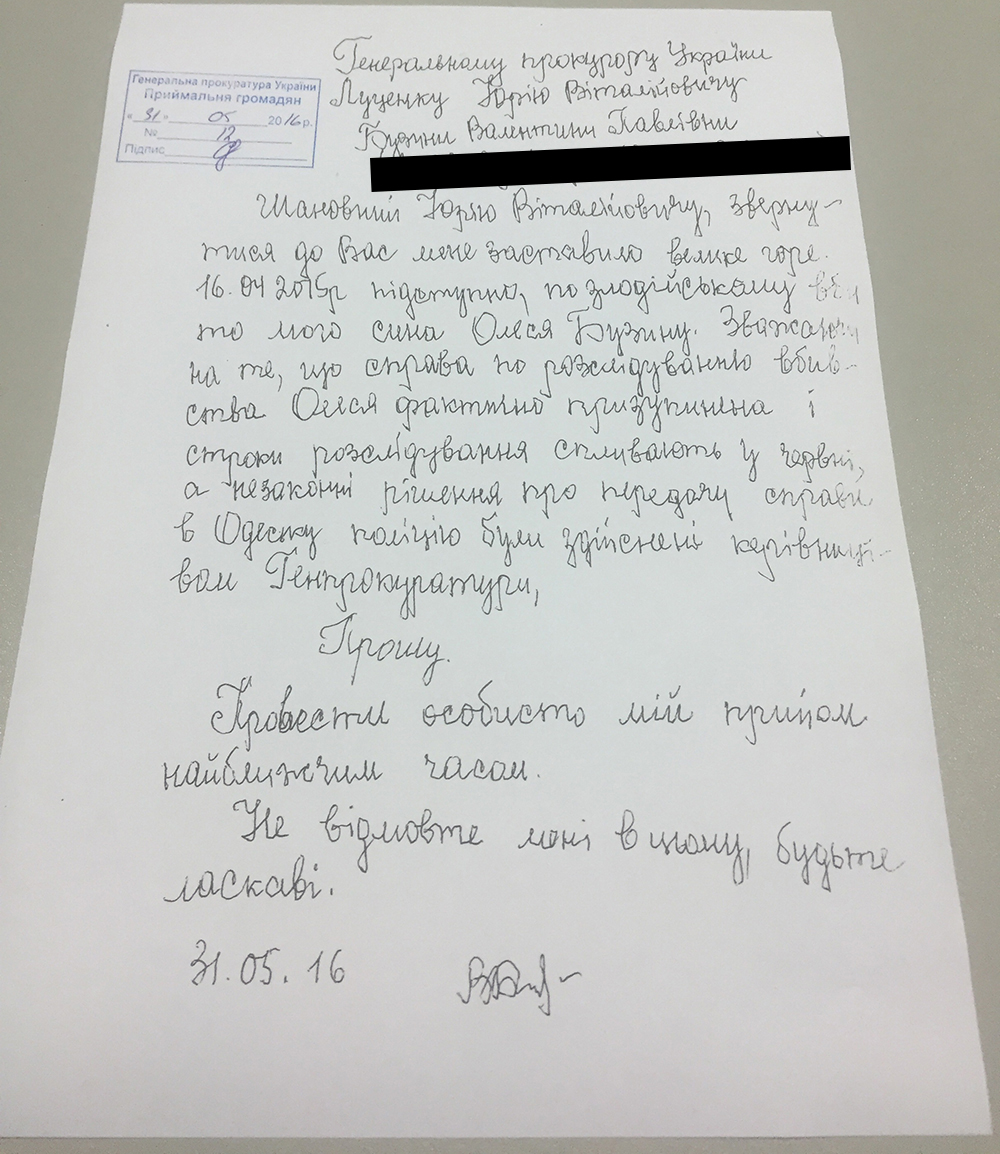 Генеральна прокуратура України
Приймальня громадян
« 31 » 05 2016 р.
№ 12
Підпис
Генеральному прокурору України
Луценку Юрію Віталійовичу
Бузини Валентини Павлівни
Шановний Юрію Віталійовичу, зверну-
тися до Вас мене заставило велике горе.
16.04 2015р підступно, по злодійському вби
то мого сина Олеся Бузину. Зважаючи
на те, що справа по розслідуванню вбив-
ства Олеся фактично призупинена і
строки розслідування спливають у червні,
а незаконні рішення про передачу справи
в Одеську поліцію були здійснені керівницт-
вом Генпрокуратури,
Прошу.
Провести особисто мій прийом
найближчим часом.
Не відмовте мені в цьому, будьте
ласкаві.
31.05.16